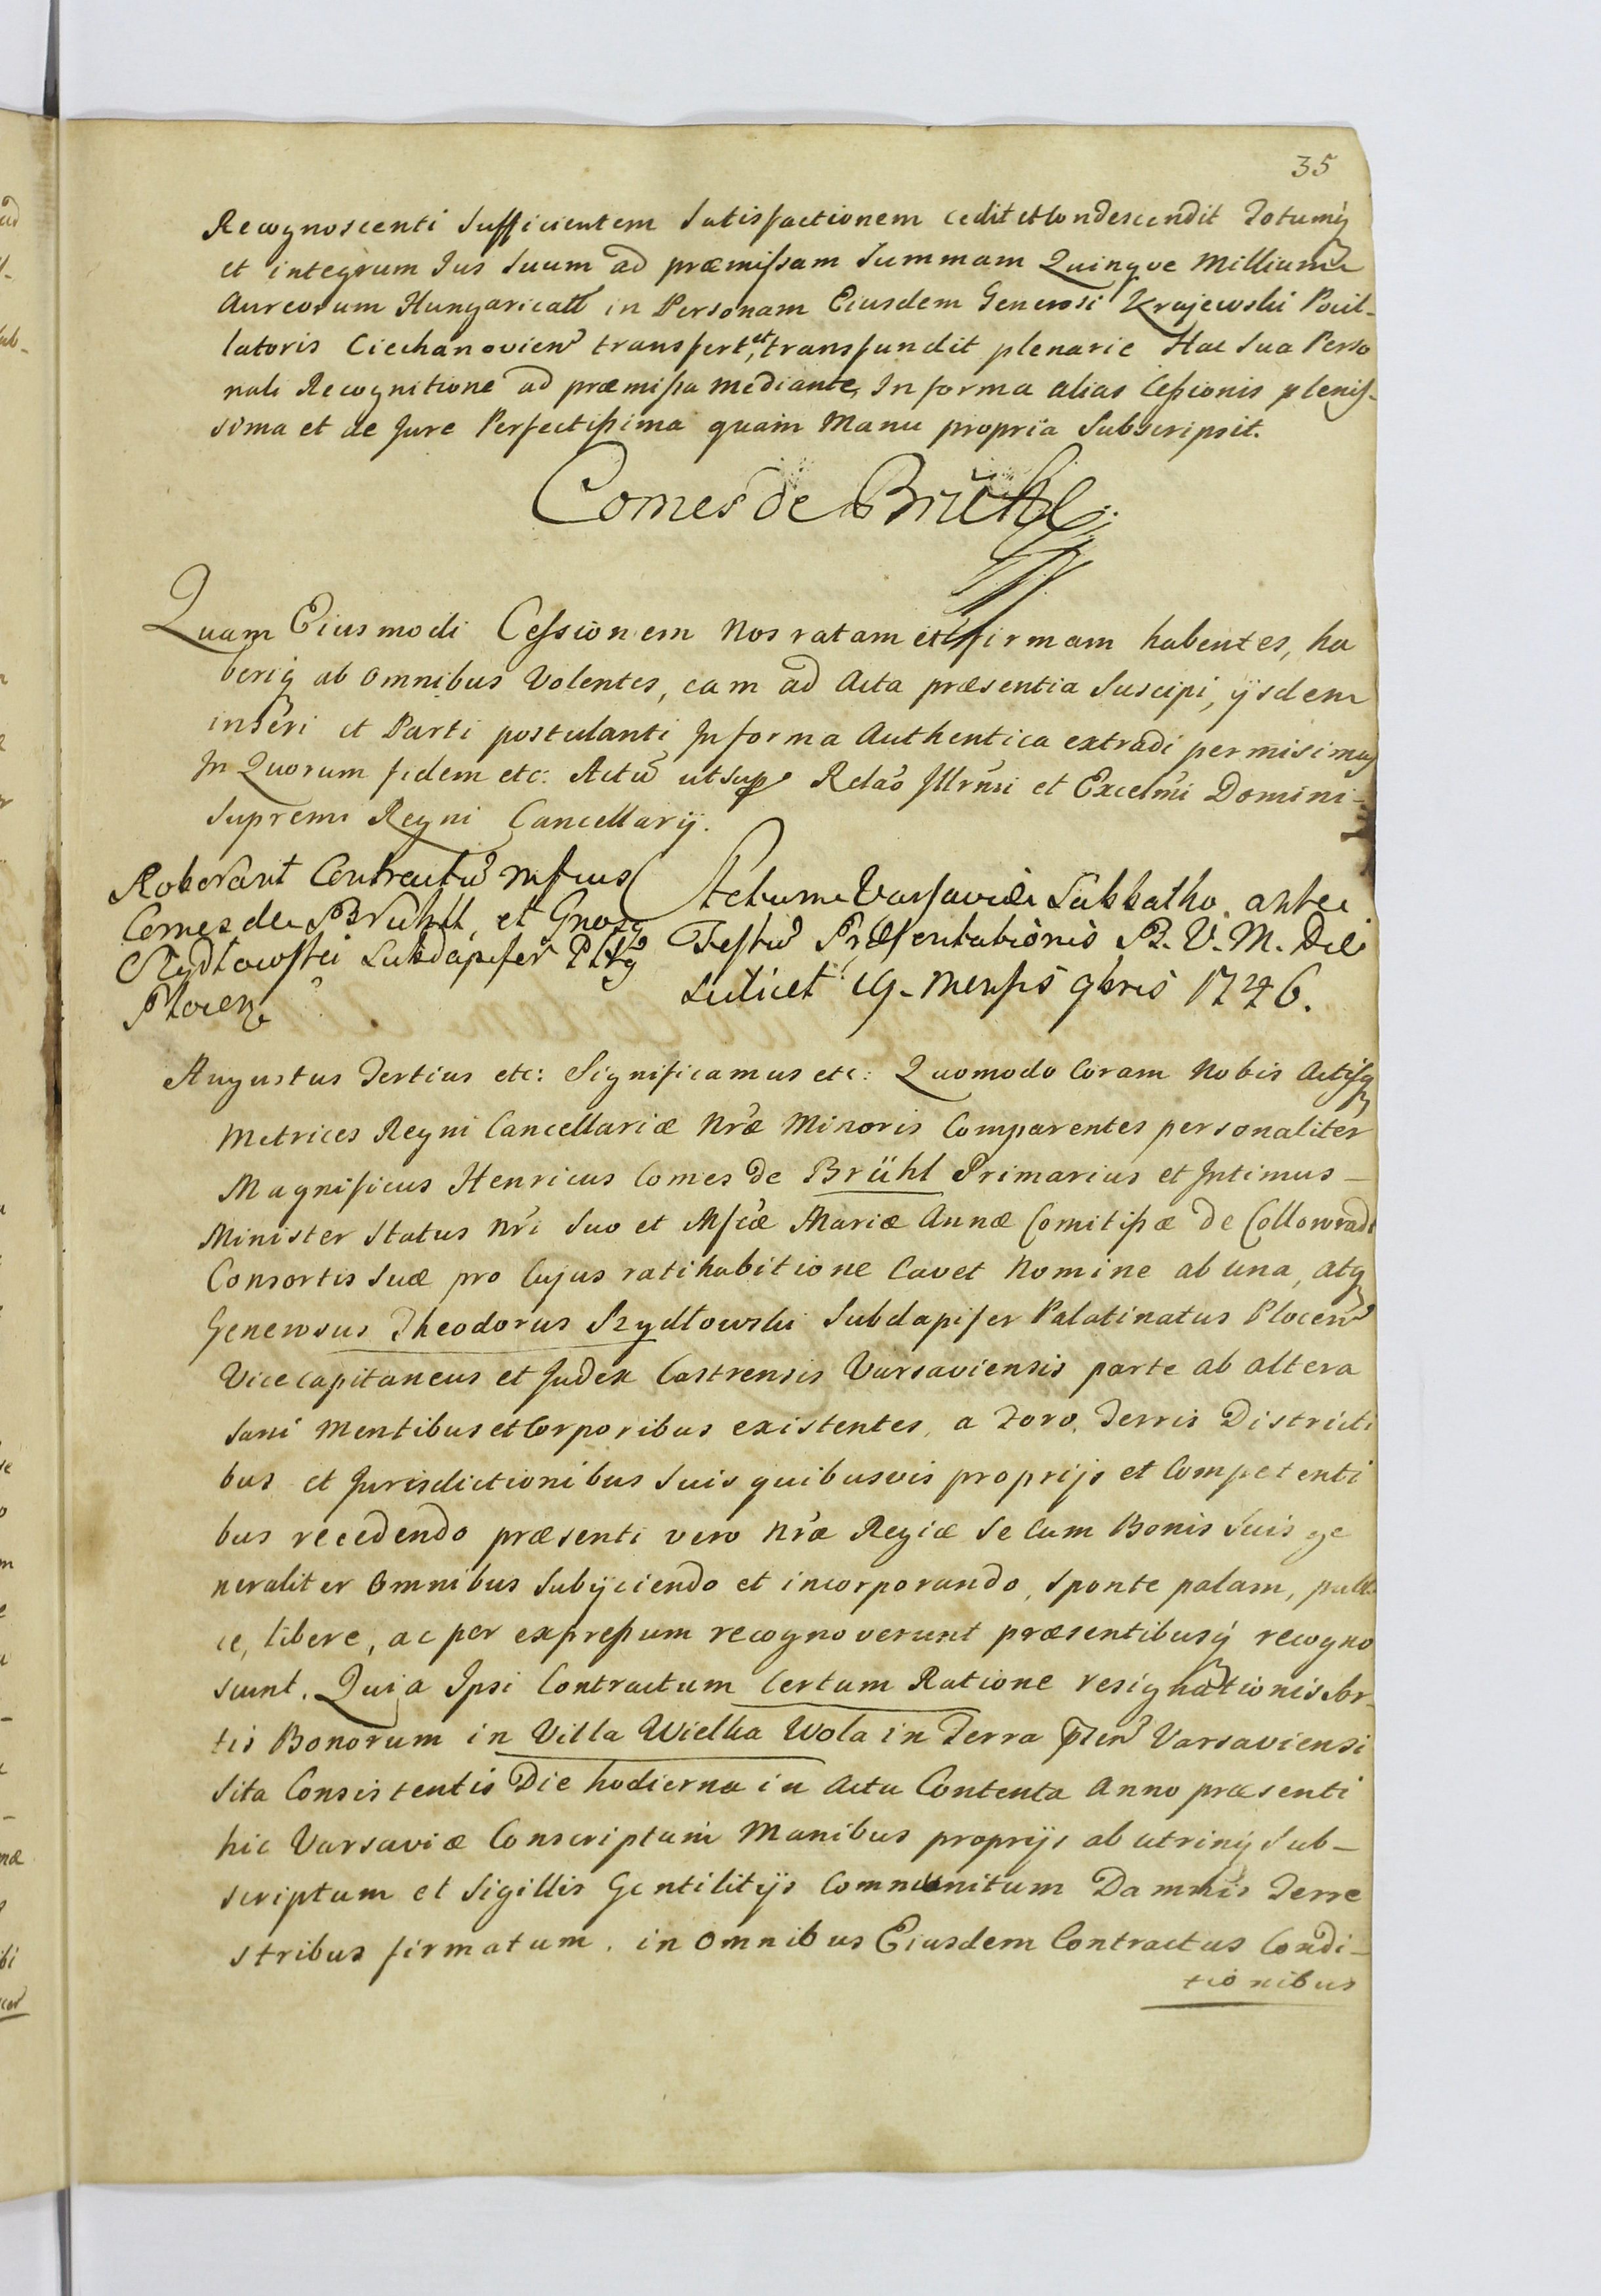 35
Recognoscenti Sufficientem Satisfactionem cedit et Condescendit Totumq
et integrum Jus Suum ad præmissam Summam Quinqve Millium
Aureorum Hungaricall in Personam Eiusdem Generosi Krajewski Pocil-
latoris Ciechanovien transfert, et transfundit plenarie Hac Sua Perso
nali Recognitione ad præmissa mediante, In forma alias Cessionis plenis-
sima et de Jure Perfectissima quam Manu propria Subscripsit.
Comes de Brühl
Quam Eiusmodi Cessionem Nos ratam et firmam habentes, ha
beriq ab omnibus Volentes, eam ad Acta præsentia Suscipi, ijsdem
inseri et Parti postulanti In forma Authentica extradi permisimus
In Quorum fidem etc: Actu utsup Relao Illrmi et Excelmi Domini
Supremi Regni Cancellarij.
Roborant Contractu Mfcus
Comes de Brühll, et Gnosq
Szydlowski Subdapifer Pltq
Plocen
Actum Varsaviæ Sabbatho ante
Festu Præsentationis B. V. M. Die
scilicet 19. Mensis 9bris 1746.
Augustus Tertius etc: Significamus etc: Quomodo Coram Nobis Actisq
Metrices Regni Cancellariæ Nræ Minoris Comparentes personaliter
Magnificus Henricus Comes de Brühl Primarius et Intimus
Minister Status Nri Suo et Mfcæ Mariæ Annæ Comitissæ de Collowradt
Consortis Suæ pro Cujus ratihabitione Cavet Nomine ab una, atq
Generosus Theodorus Szydłowski Subdapifer Palatinatus Plocen
Vicecapitaneus et Judex Castrensis Varsaviensis parte ab altera
Sani Mentibus et Corporibus existentes, a Foro, Terris Districti
bus et Jurisdictionibus Suis quibusvis proprijs et Competenti
bus recedendo præsenti vero Nræ Regiæ Se Cum Bonis Suis ge
neraliter Omnibus Subijciendo et incorporando, sponte palam, publi
ce, libere, ac per expressum recognoverunt præsentibusq recogno
scunt. Quia Ipsi Contractum Certum Ratione resignationis Sor-
tis Bonorum in Villa Wielka Wola in Terra pten Varsaviensi
Sita Consistentis Die hodierna in Actu Contenta Anno præsenti
hic Varsaviæ Conscriptum Manibus proprijs ab utrinq Sub-
scriptum et Sigillis Gentilitijs Communitum Damnis Terre
stribus firmatum, in Omnibus Eiusdem Contractus Condi-
tionibus